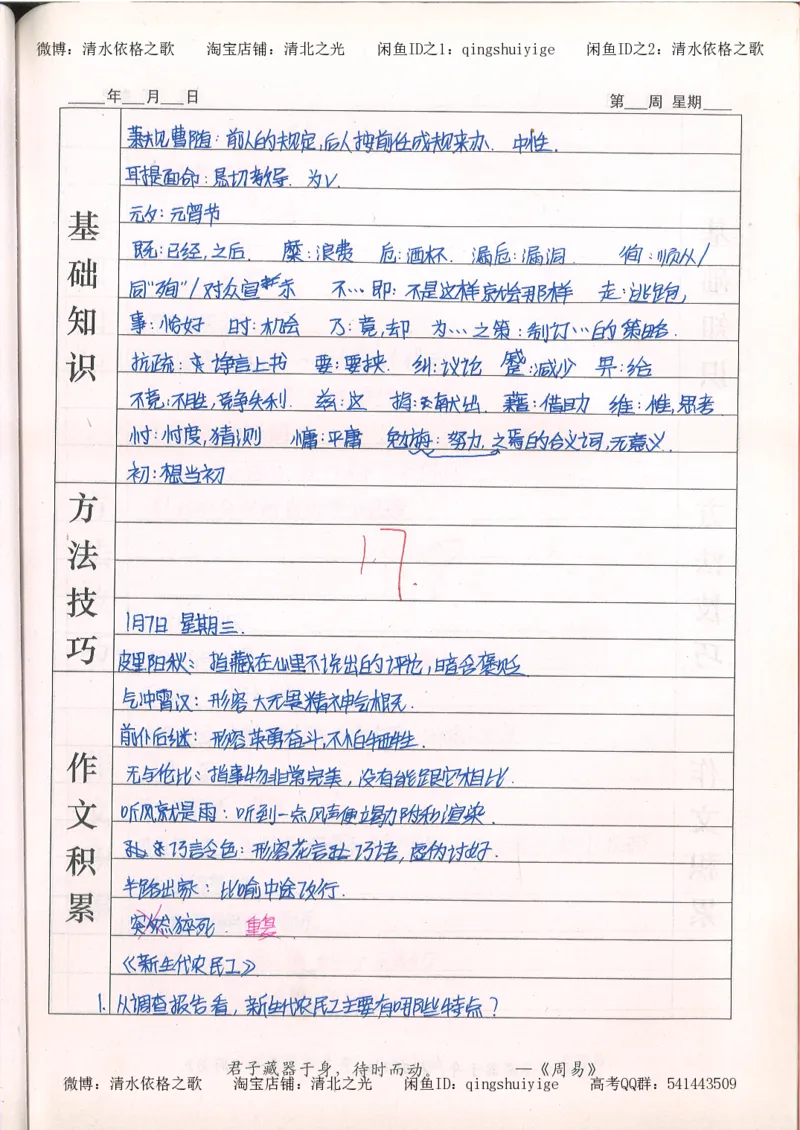 微博：清水依格之歌 淘宝店铺：清北之光 闲鱼ID之1：qingshuiyige 闲鱼ID之2：清水依格之歌
____年___月___日 第___周 星期____
基础知识
萧规曹随：前人的规定，后人按前任成规来办．中性．
耳提面命：恳切教导．为V．
元夕：元宵节
既：已经，之后． 糜：浪费 卮：酒杯． 漏卮：漏洞． 徇：顺从/
同“殉”/对众宣示 不…即：不是这样就会那样 走：逃跑，
事：恰好 时：机会 乃：竟，却 为…之策：制订…的策略．
抗疏：诤言上书 要：要挟． 纠：议论 蹙：减少 畀：给
不竞：不胜，竞争失利． 兹：这 捐：献出． 藉：借助 维：惟，思考
忖：忖度，猜测 慵：平庸 勉旃：努力，之焉的合义词，无意义．
初：想当初
方法技巧
17.
1月7日 星期三．
皮里阳秋：指藏在心里不说出的评论，暗含褒贬
作文积累
气冲霄汉：形容大无畏精神气概．
前仆后继：形容英勇奋斗，不怕牺牲．
无与伦比：指事物非常完美，没有能跟它相比．
听风就是雨：听到一点风声便立马附和渲染．
巧言令色：形容花言巧语，虚伪讨好．
半路出家：比喻中途改行．
突然猝死． 重复
《新生代农民工》
1. 从调查报告看，新生代农民工主要有哪些特点？
君子藏器于身，待时而动。 —《周易》
微博：清水依格之歌 淘宝店铺：清北之光 闲鱼ID：qingshuiyige 高考QQ群：541443509